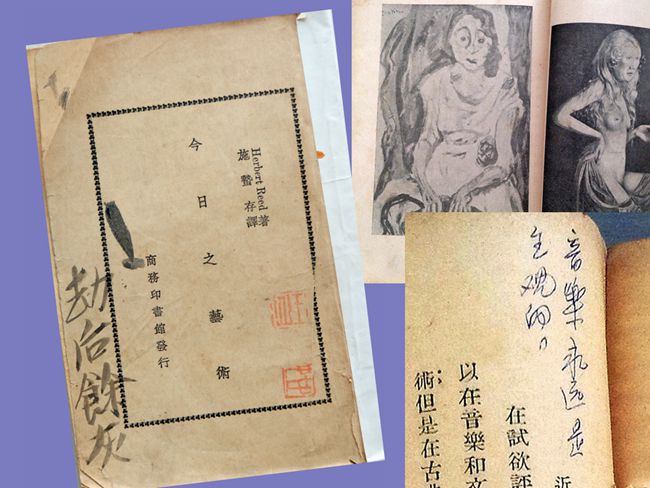 Herbert Reed著
施蟄存譯
今日之藝術
商務印書館發行
！
劫后餘灰
音樂永远是
主观的。
近
在試欲評
以在音樂和文
術但是在古